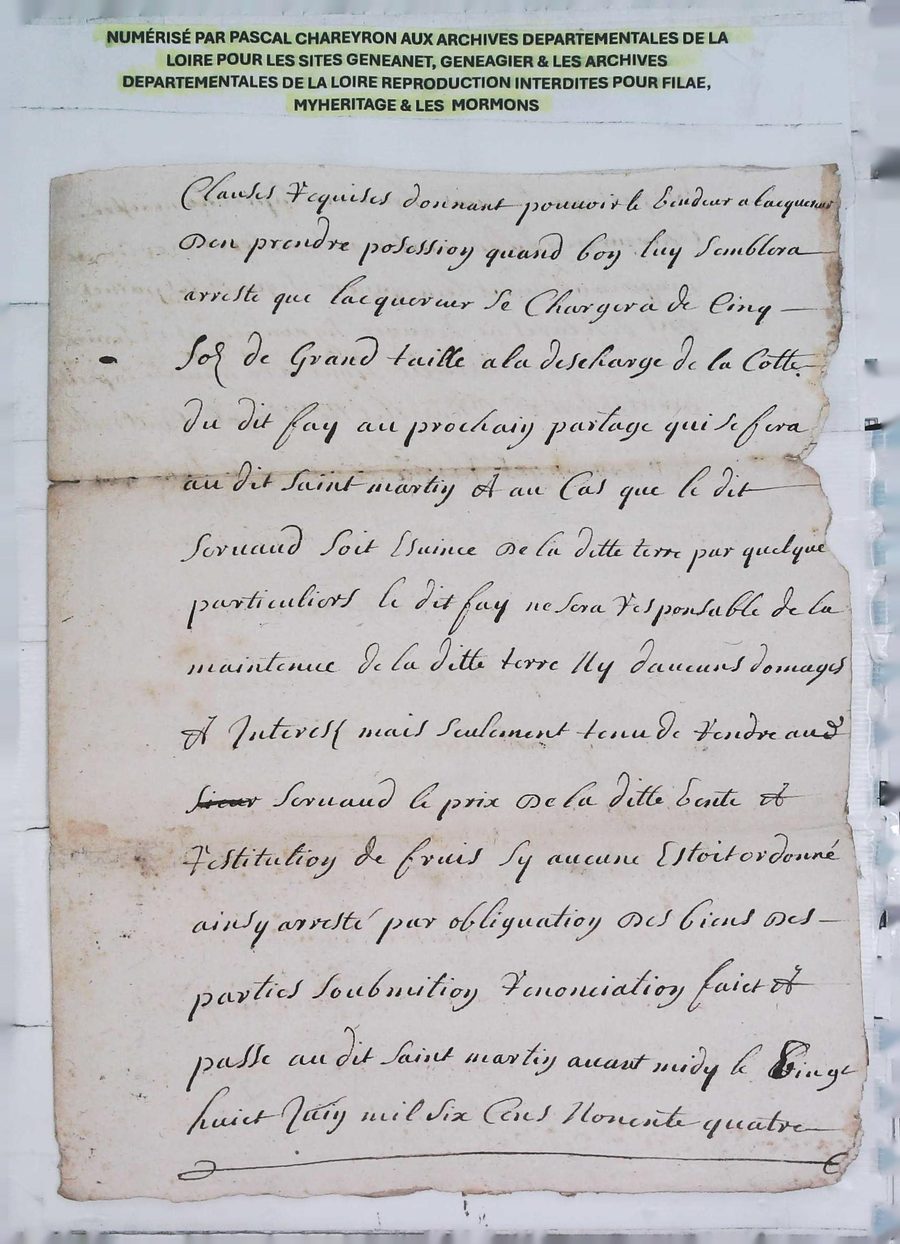 NUMÉRISÉ PAR PASCAL CHAREYRON AUX ARCHIVES DEPARTEMENTALES DE LA
LOIRE POUR LES SITES GENEANET, GENEAGIER & LES ARCHIVES
DEPARTEMENTALES DE LA LOIRE REPRODUCTION INTERDITES POUR FILAE,
MYHERITAGE & LES MORMONS
Clauses requises donnant pouvoir le vendeur a lacquereur
Den prendre posession quand bon luy semblera
arresté que lacquereur se Chargera de Cinq
Solz de Grand taille a la descharge de la Cotte
du dit fay au prochain partage qui se fera
au dit saint martin et au Cas que le dit
Servaud soit Esuince de la ditte terre par quelque
particuliers le dit fay ne sera responsable de la
maintenue de la ditte terre Ny daucuns domages
et Interest mais seulement tenu de rendre aud
sieur Servaud le prix de la ditte vente et
restitution de fruis sy aucune Estoit ordonné
ainsy arresté par obliguation des biens des
parties soubmition renonciation faict et
passe au dit saint martin auant midy le vingt
huict Juin mil six Cens Nonente quatre